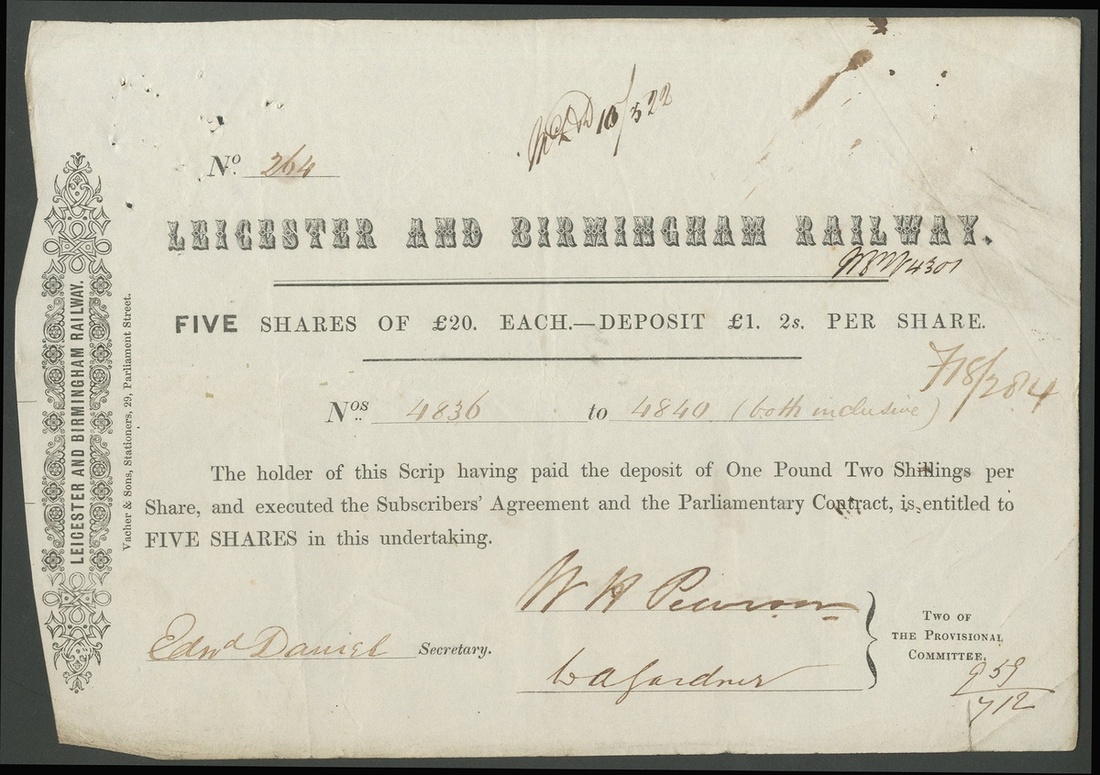 10/322
No. 264
LEICESTER AND BIRMINGHAM RAILWAY.
4301
FIVE SHARES OF £20. EACH.—DEPOSIT £1. 2s. PER SHARE.
718/2814
Nos 4836 to 4840 (both inclusive)
The holder of this Scrip having paid the deposit of One Pound Two Shillings per
Share, and executed the Subscribers' Agreement and the Parliamentary Contract, is entitled to
FIVE SHARES in this undertaking.
W H Pearson
Edwd Daniel Secretary.
W A Gardner
TWO OF
THE PROVISIONAL
COMMITTEE.
959
712
LEICESTER AND BIRMINGHAM RAILWAY.
Vacher & Sons, Stationers, 29, Parliament Street.